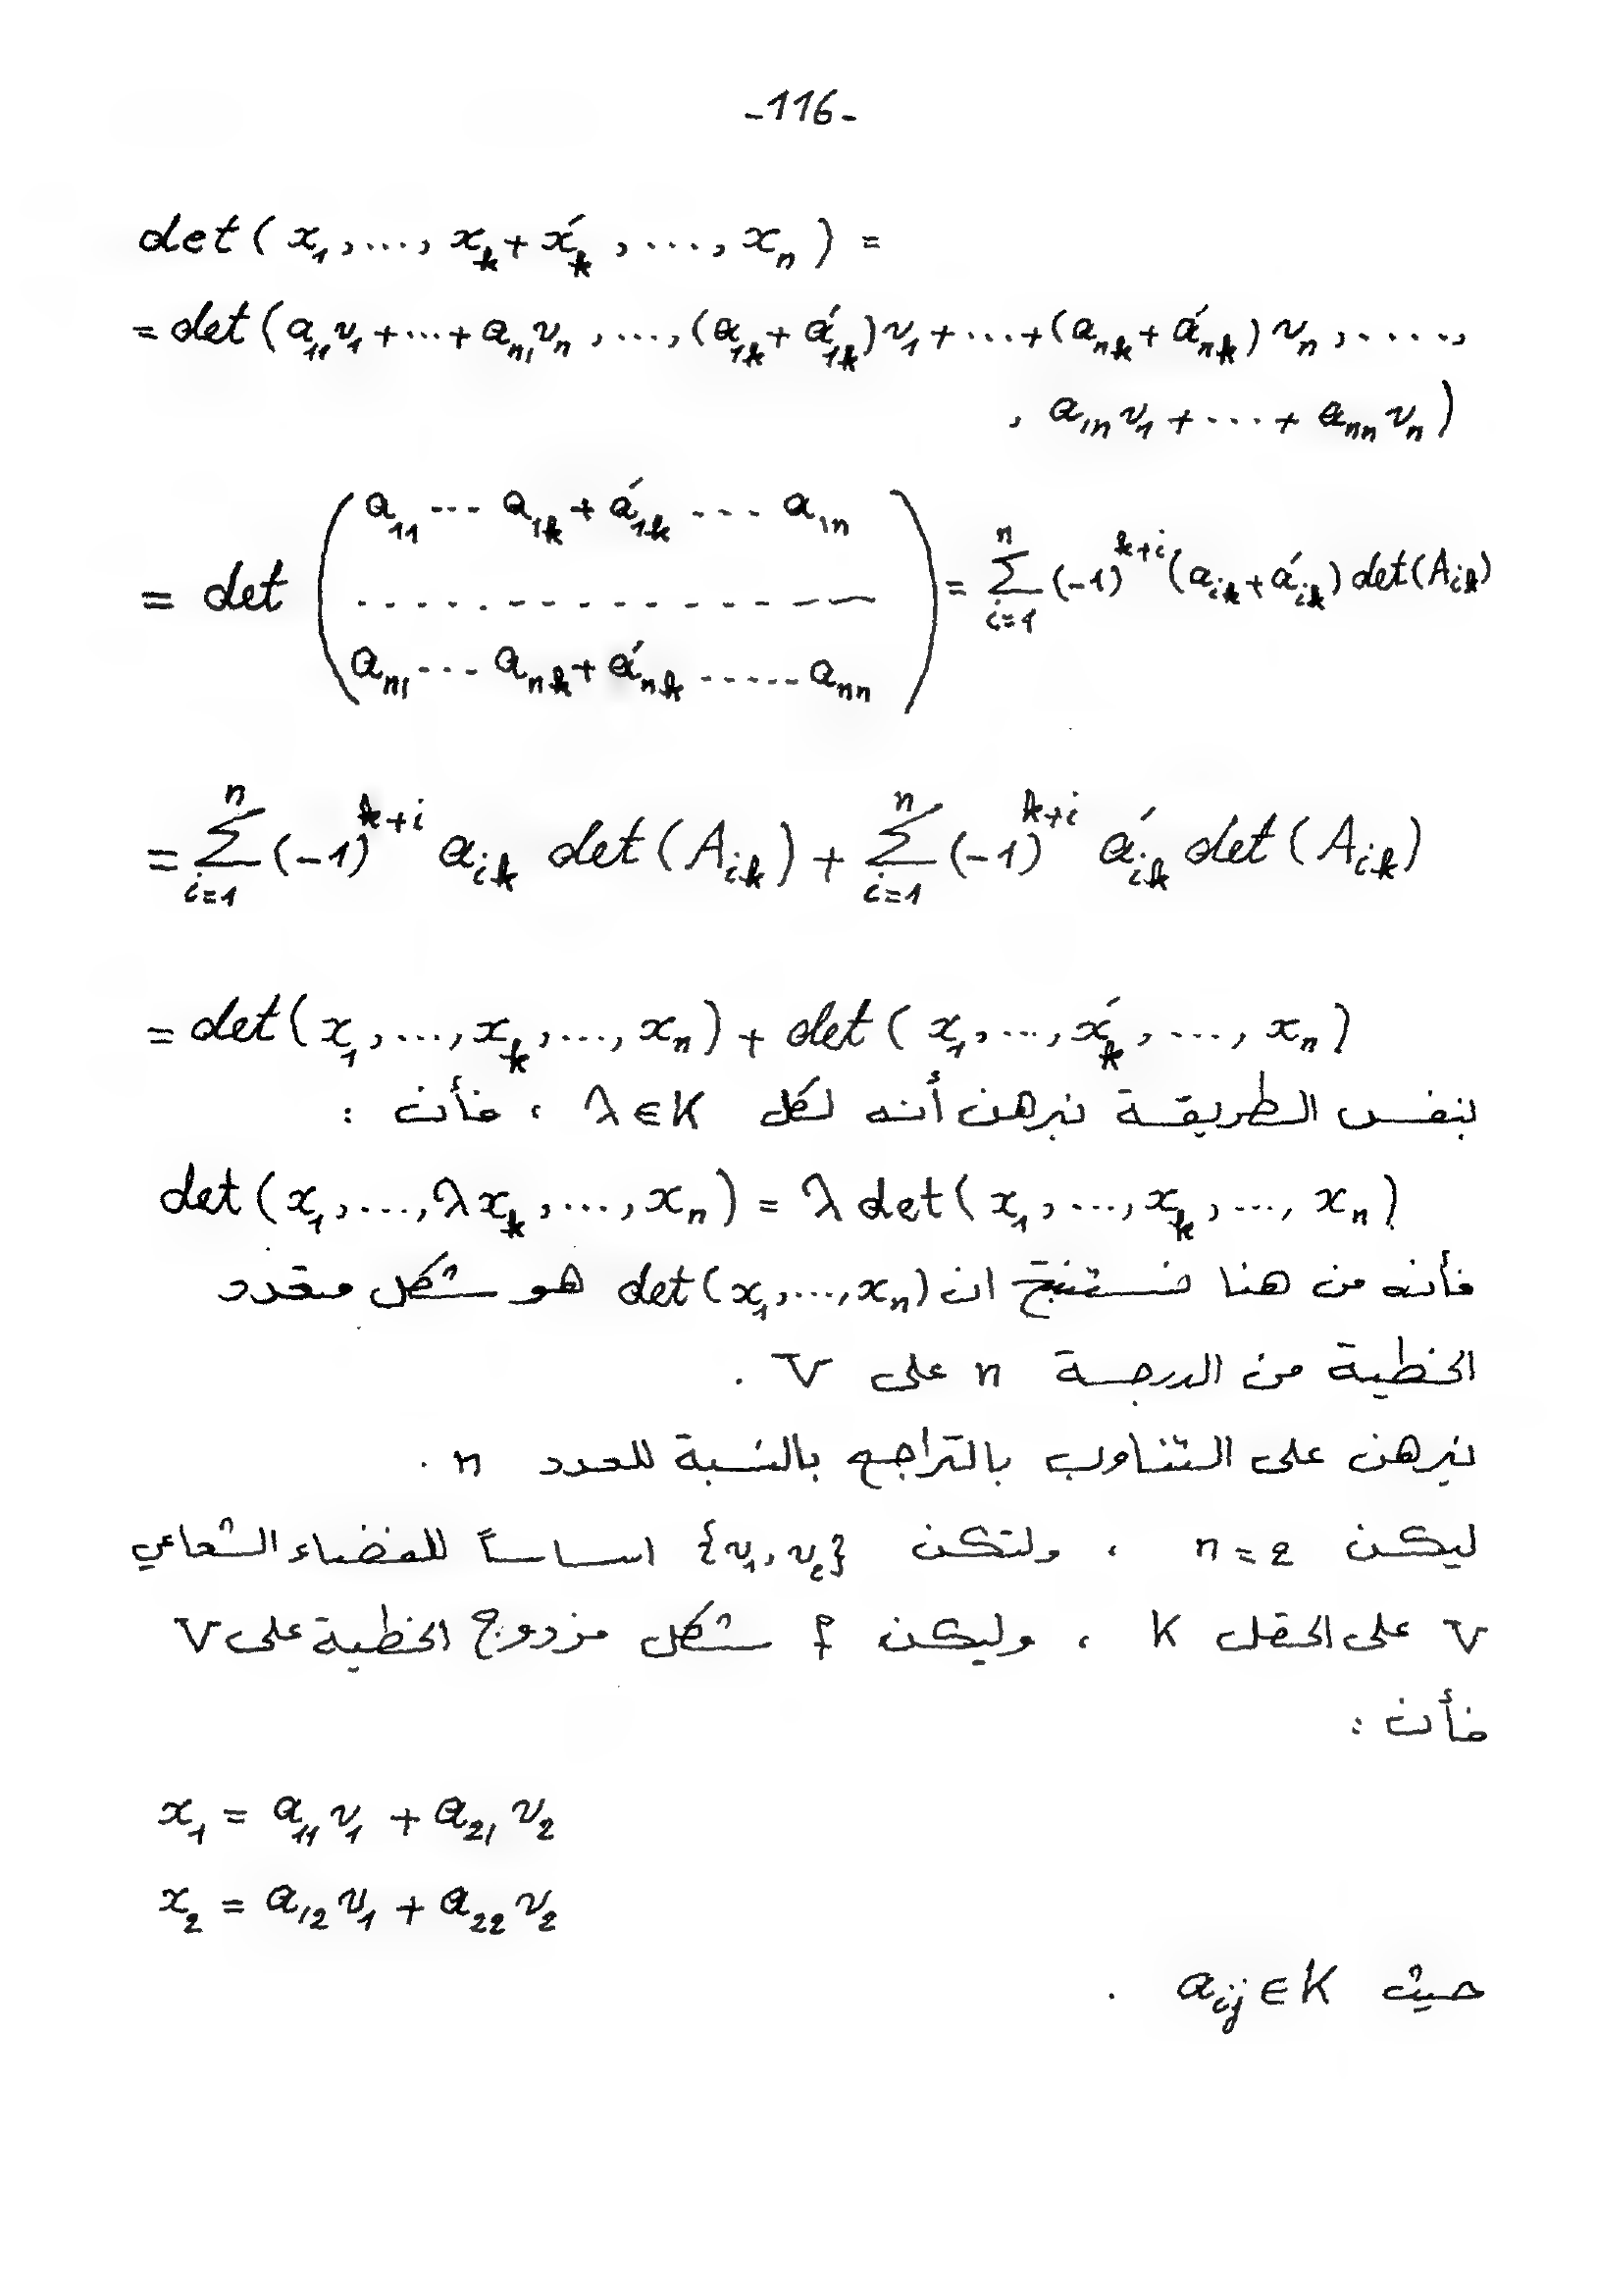 -116-
det(x₁,...,x_k+x′_k,...,x_n) =
= det(a₁₁v₁+...+a_n₁v_n,...,(a₁k+a′₁k)v₁+...+(a_nk+a′_nk)v_n,.....,
, a₁n v₁+....+a_nn v_n)
= det ( a₁₁ --- a₁k+a′₁k ---- a₁n
. . . . . . . . . . . . . . . .
a_n₁ ---- a_nk+a′_nk ------ a_nn ) = ∑_{i=1}^{n} (-1)^{k+i} (a_ik+a′_ik) det(A_ik)
= ∑_{i=1}^{n} (-1)^{k+i} a_ik det(A_ik) + ∑_{i=1}^{n} (-1)^{k+i} a′_ik det(A_ik)
= det(x₁,...,x_k,...,x_n) + det(x₁,...,x′_k,...,x_n)
بنفس الطريقة نبرهن أنه لكل λ∈K ، فأن :
det(x₁,...,λx_k,...,x_n) = λ det(x₁,...,x_k,...,x_n)
فأنه من هنا نستنتج ان det(x₁,...,x_n) هو شكل متعدد
الخطية من الدرجة n على V .
نبرهن على التناوب بالتراجع بالنسبة للعدد n .
ليكن n=2 ، ولتكن {v₁,v₂} اساساً للفضاء الشعاعي
V على الحقل K ، وليكن f شكل مزدوج الخطية على V
فأن :
x₁ = a₁₁v₁ + a₂₁v₂
x₂ = a₁₂v₁ + a₂₂v₂
حيث a_ij∈K .